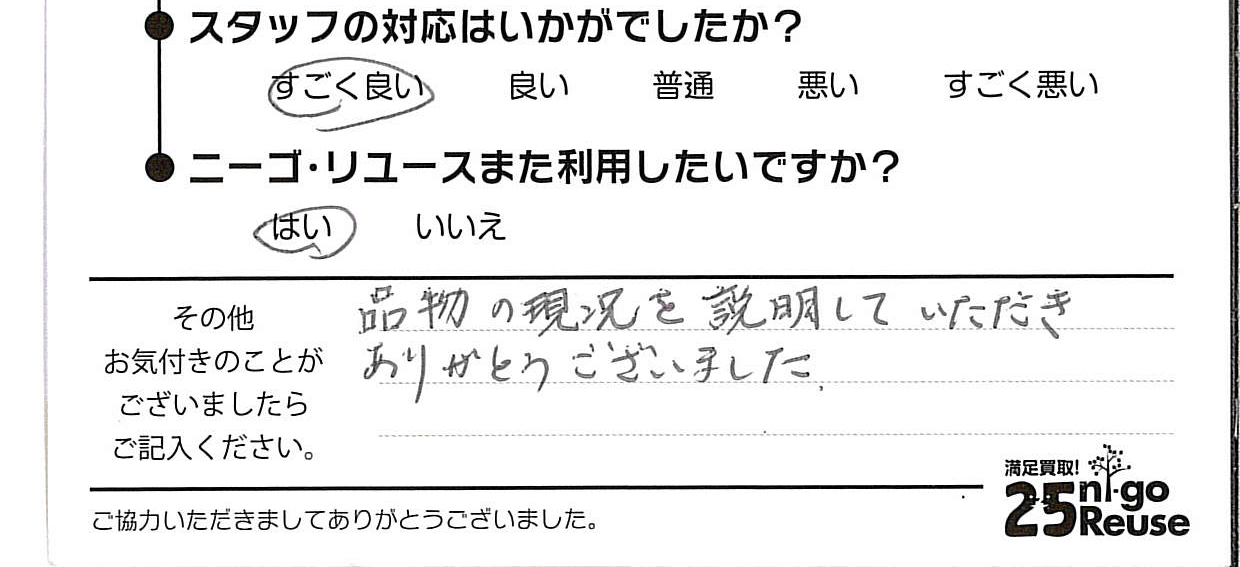 スタッフの対応はいかがでしたか？
すごく良い 良い 普通 悪い すごく悪い
ニーゴ・リユースまた利用したいですか？
はい いいえ
その他
お気付きのことが
ございましたら
ご記入ください。
品物の現況を説明していただき
ありがとうございました.
満足買取!
25 ni-go
Reuse
ご協力いただきましてありがとうございました。